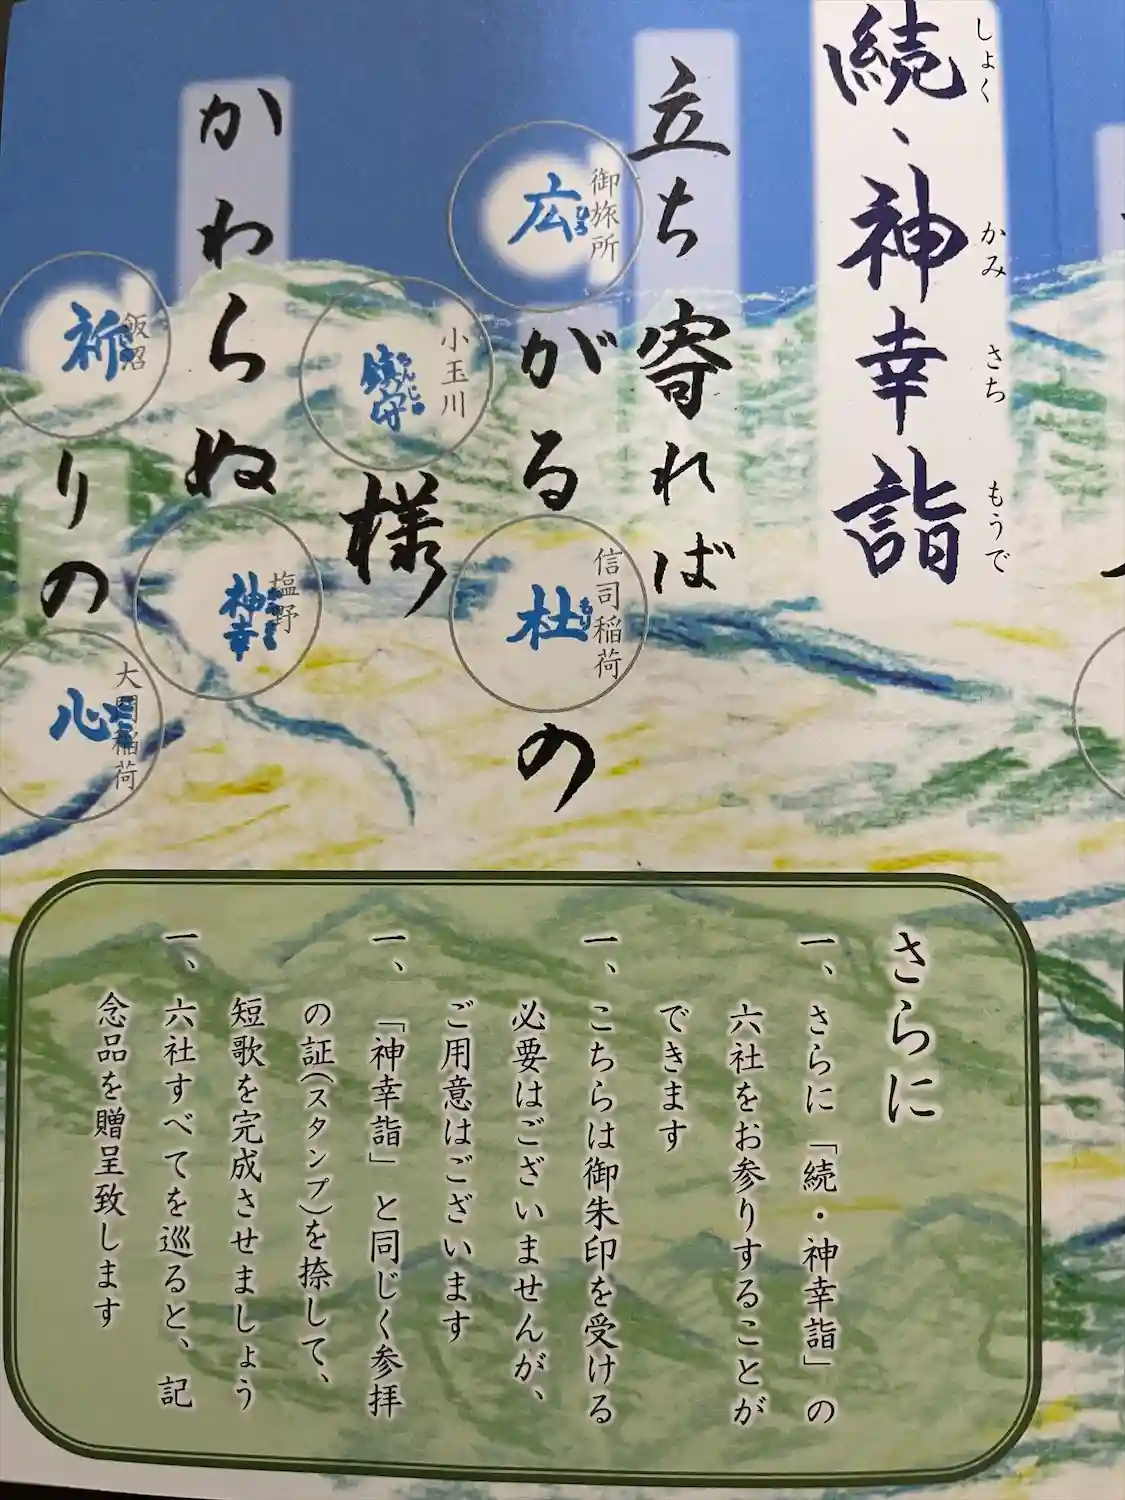 続、神幸詣
しょく かみ さち もうで
立ち寄れば
御旅所
広
ひろ
がる
信司稲荷
杜
もり
の
小玉川
鎮守
ちんじゅ
様
かわらぬ
塩野
神幸
飯沼
祈
りの
大関稲荷
心
さらに
一、さらに「続・神幸詣」の
六社をお参りすることが
できます
一、こちらは御朱印を受ける
必要はございませんが、
ご用意はございます
一、「神幸詣」と同じく参拝
の証(スタンプ)を捺して、
短歌を完成させましょう
一、六社すべてを巡ると、記
念品を贈呈致します